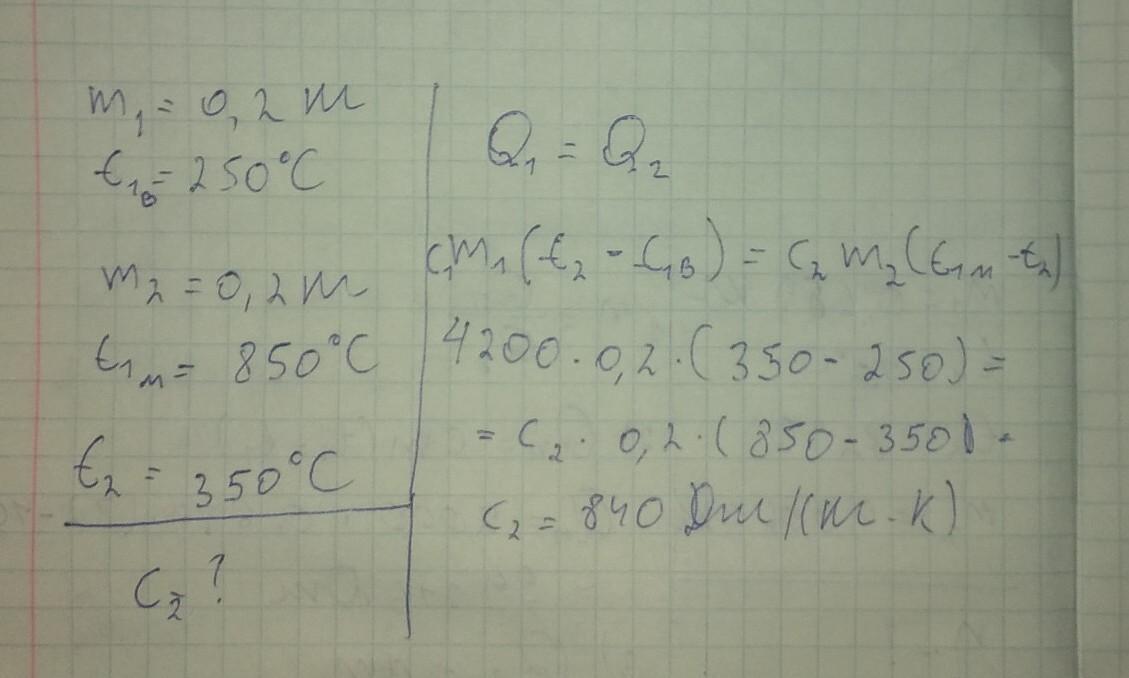 m₁ = 0,2 т
t₁в = 250°C
m₂ = 0,2 т
t₁м = 850°C
t₂ = 350°C
C₂ ?
Q₁ = Q₂
c₁m₁(t₂ - t₁в) = c₂ m₂(t₁м - t₂)
4200 · 0,2 · (350 - 250) =
= c₂ · 0,2 · (850 - 350)
c₂ = 840 Дж/(кг · К)